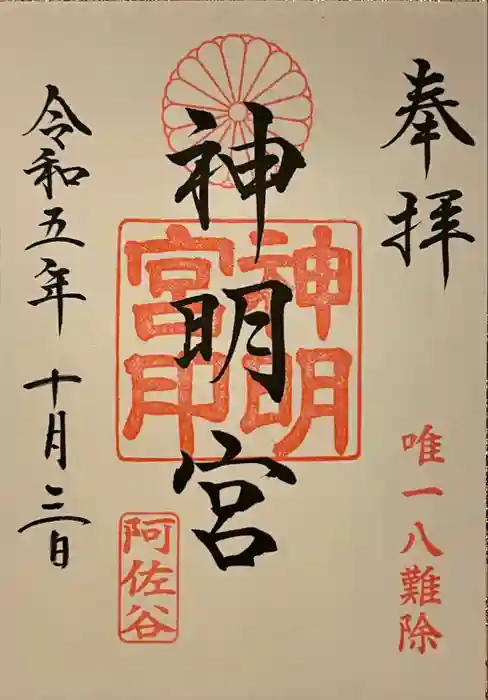 奉拝
唯一八難除
神明宮
神明
宮印
阿佐谷
令和五年十月三日